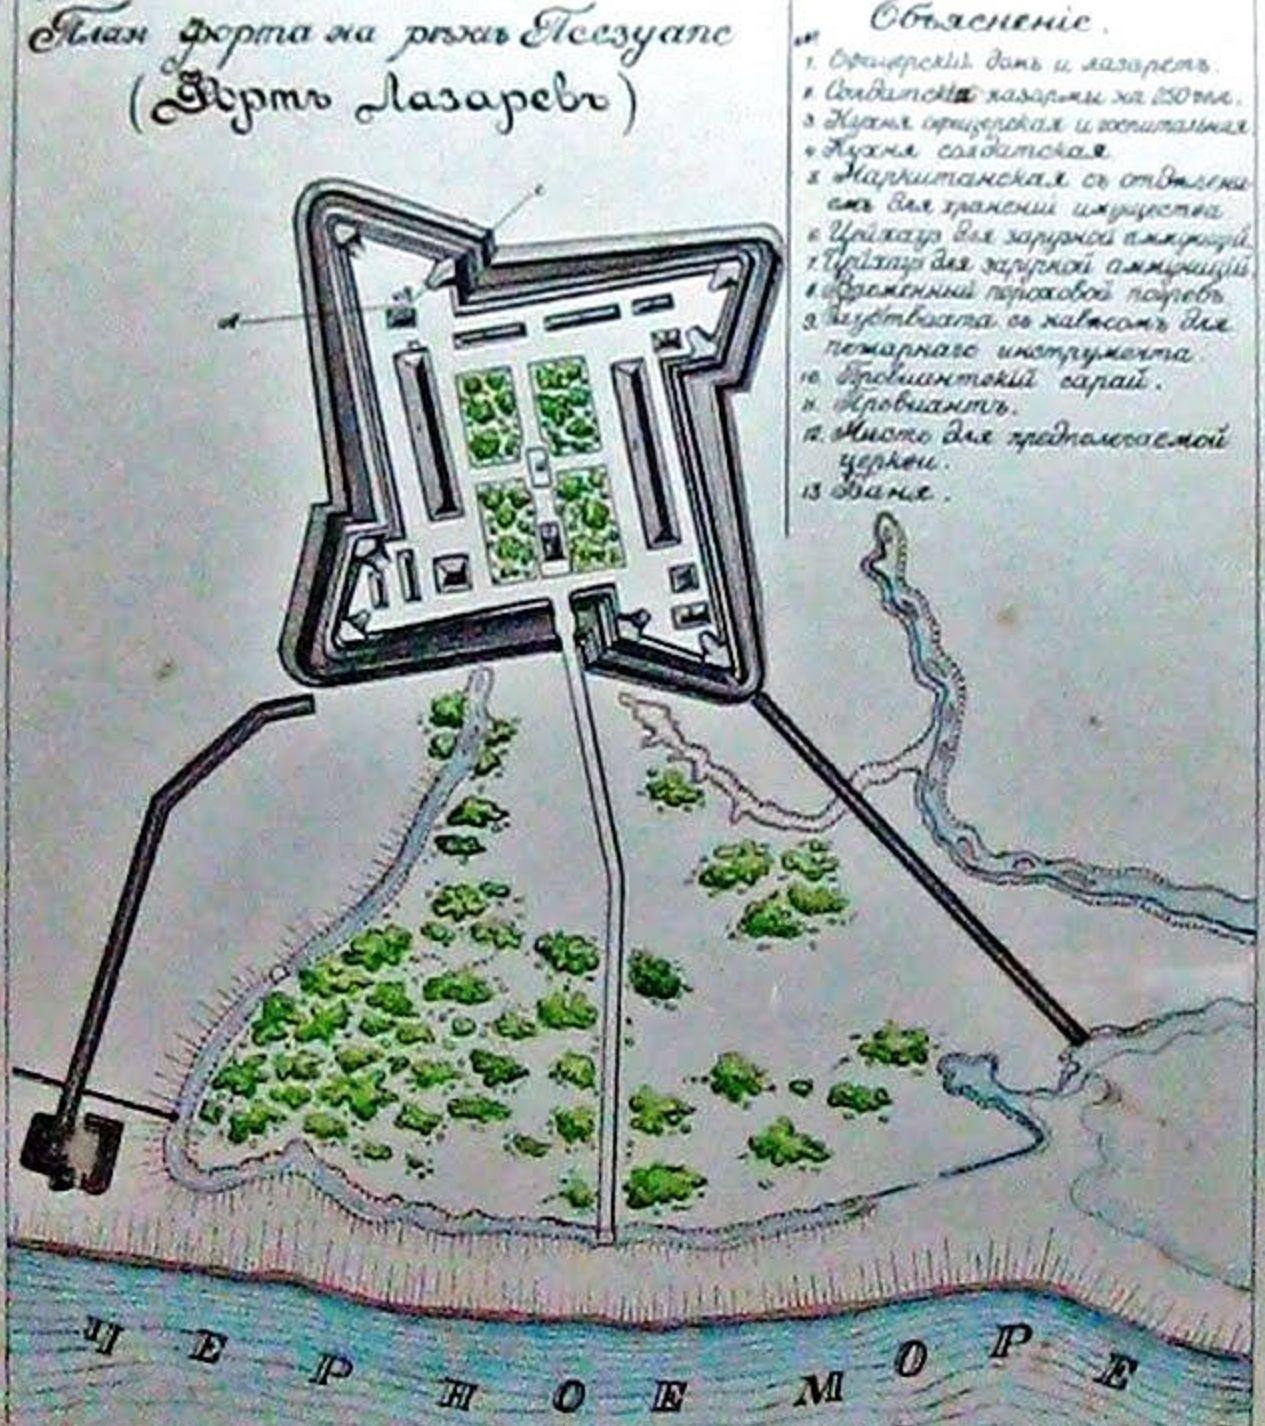 План форта на рѣкѣ Псезуапс
(Фортъ Лазаревъ)
Объясненіе.
№
1. Офицерскій домъ и лазаретъ.
2. Солдатскія казармы на 250 чел.
3. Кухня офицерская и госпитальная
4. Кухня солдатская
5. Маркитанская съ отдѣлені-
емъ для храненій имущества
6. Цейхауз для зарузной аммуницій
7. Цейхауз для аммуницій
8. Временный пороховой погребъ
9. съ навѣсомъ для
пожарнаго инструмента.
10. Провіантскій сарай.
11. Провіантъ.
12. Мѣсто для предполагаемой
церкви.
13. Баня.
с
ЧЕРНОЕ МОРЕ